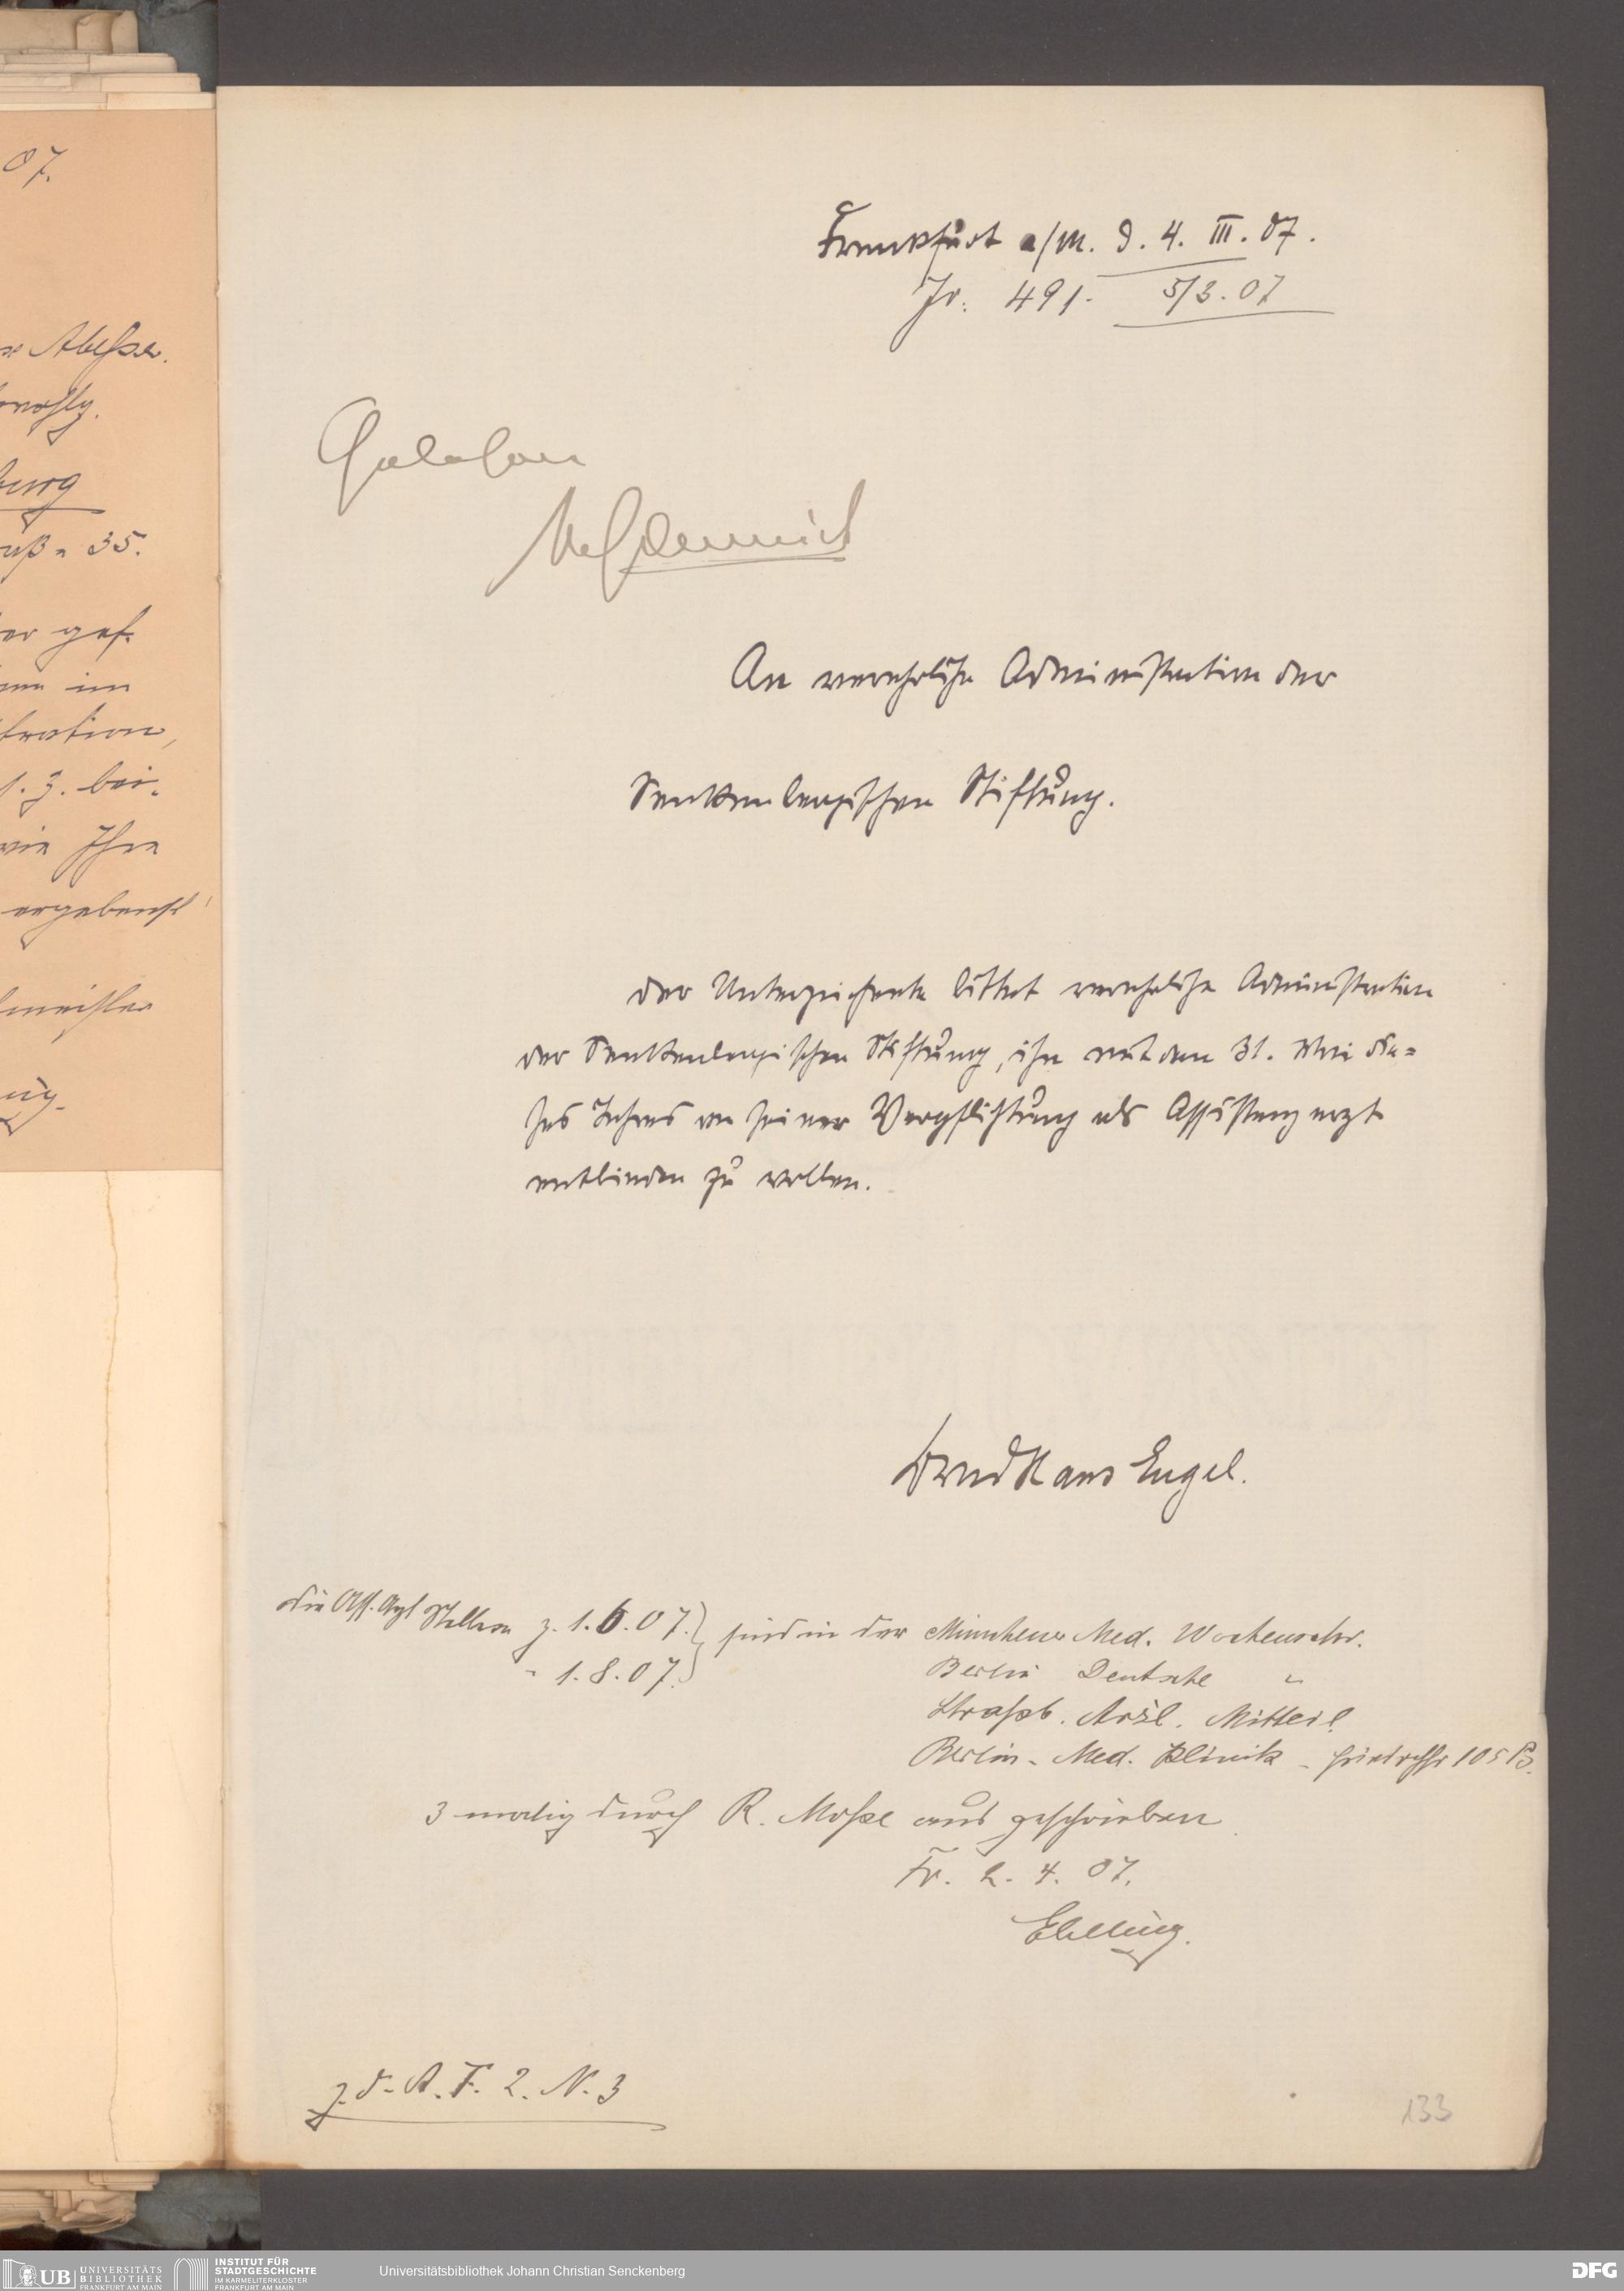 07.
Frankfurt a/M. d. 4. III. 07.
Jr. 491. 5/3.07
Gelesen
An verehrliche Administration der
Senkenbergischen Stiftung.
Der Unterzeichnete bittet verehrliche Administration
der Senkenbergischen Stiftung, ihn mit dem 31. Mai die=
ses Jahres von seiner Verpflichtung als Assistenzarzt
entbinden zu wollen.
Hans Engel.
die Ass. Arzt Stellen z. 1.6.07. } sind in der Münchener Med. Wochenschr.
" 1.8.07. Berlin Deutsche "
Strassb. Ärztl. Mitteil.
Berlin. Med. Klinik - Friedrichstr 105 B.
3 malig durch R. Mosse aus geschrieben
Fr. 2. 4. 07.
Ebeling.
z. d. A. F. 2. N. 3
133
burg
35.
er gef.
im
tration,
s. Z. bei-
wie Ihre
ergebenst
UB UNIVERSITÄTS
BIBLIOTHEK
FRANKFURT AM MAIN
INSTITUT FÜR
STADTGESCHICHTE
IM KARMELITERKLOSTER
FRANKFURT AM MAIN
Universitätsbibliothek Johann Christian Senckenberg
DFG